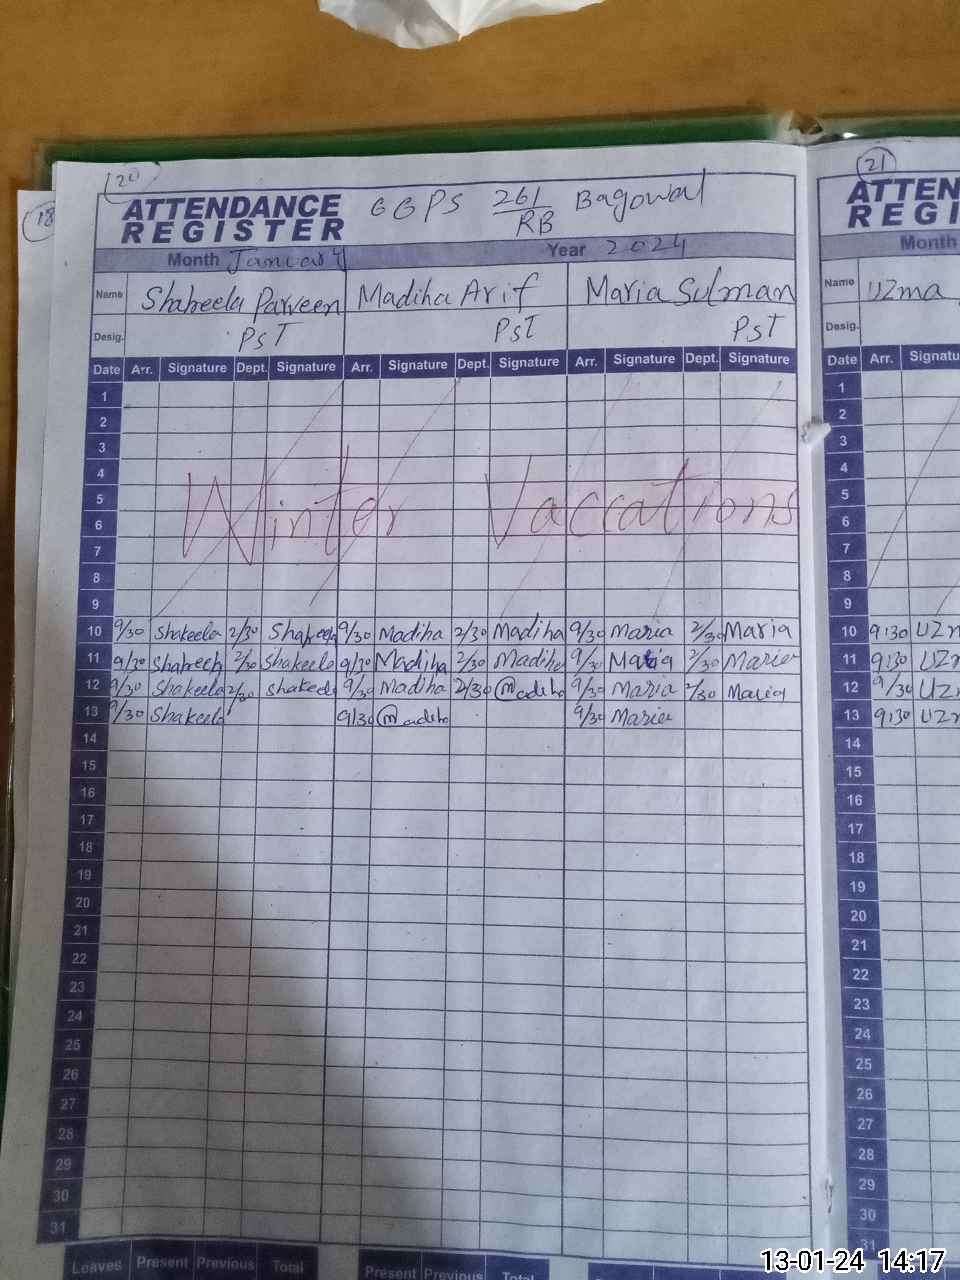 20
18
ATTENDANCE
REGISTER
GGPS 261/RB Bagowal
Month January Year 2024
Name Shakeela Parveen Madiha Arif Maria Sulman
Desig. PST PST PST
Date Arr. Signature Dept. Signature Arr. Signature Dept. Signature Arr. Signature Dept. Signature
1
2
3
4
5
6
7
8
9
Winter Vaccations
10 9/30 Shakeela 2/30 Shakeela 9/30 Madiha 2/30 Madiha 9/30 Maria 2/30 Maria
11 9/30 Shakeela 2/30 Shakeela 9/30 Madiha 2/30 Madiha 9/30 Maria 2/30 Maria
12 9/30 Shakeela 2/30 Shakeela 9/30 Madiha 2/30 Madiha 9/30 Maria 2/30 Maria
13 9/30 Shakeela 9/30 Madiha 9/30 Maria
14
15
16
17
18
19
20
21
22
23
24
25
26
27
28
29
30
31
Leaves Present Previous Total Present Previous Total
21
ATTEN
REGI
Month
Name Uzma
Desig.
Date Arr. Signatu
1
2
3
4
5
6
7
8
9
10 9:30 Uz
11 9:30 Uz
12 9/30 Uz
13 9:30 Uz
14
15
16
17
18
19
20
21
22
23
24
25
26
27
28
29
30
31
13-01-24 14:17